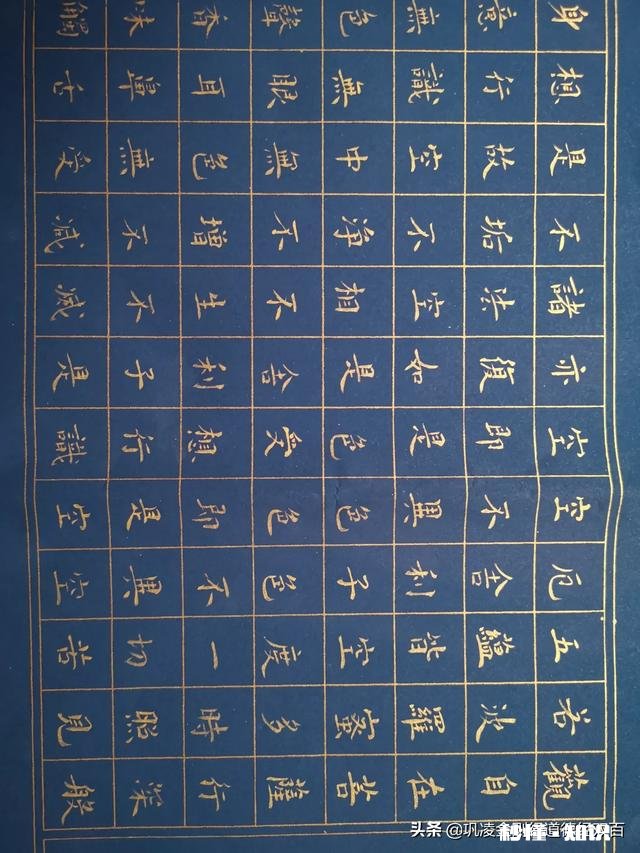 觀自在菩薩行深般
若波羅蜜多時照見
五蘊皆空度一切苦
厄舍利子色不異空
空不異色色即是空
空即是色受想行識
亦復如是舍利子是
諸法空相不生不滅
不垢不淨不增不減
是故空中無色無受
想行識無眼耳鼻舌
身意無色聲香味觸
头条 @巩凌